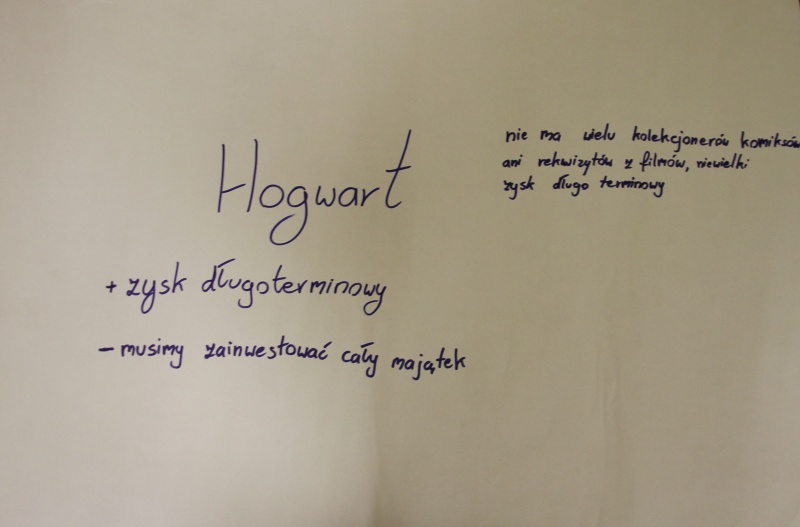 Hogwart
+ zysk długoterminowy
- musimy zainwestować cały majątek
nie ma wielu kolekcjonerów komiksów
ani rekwizytów z filmów, niewielki
zysk długo terminowy